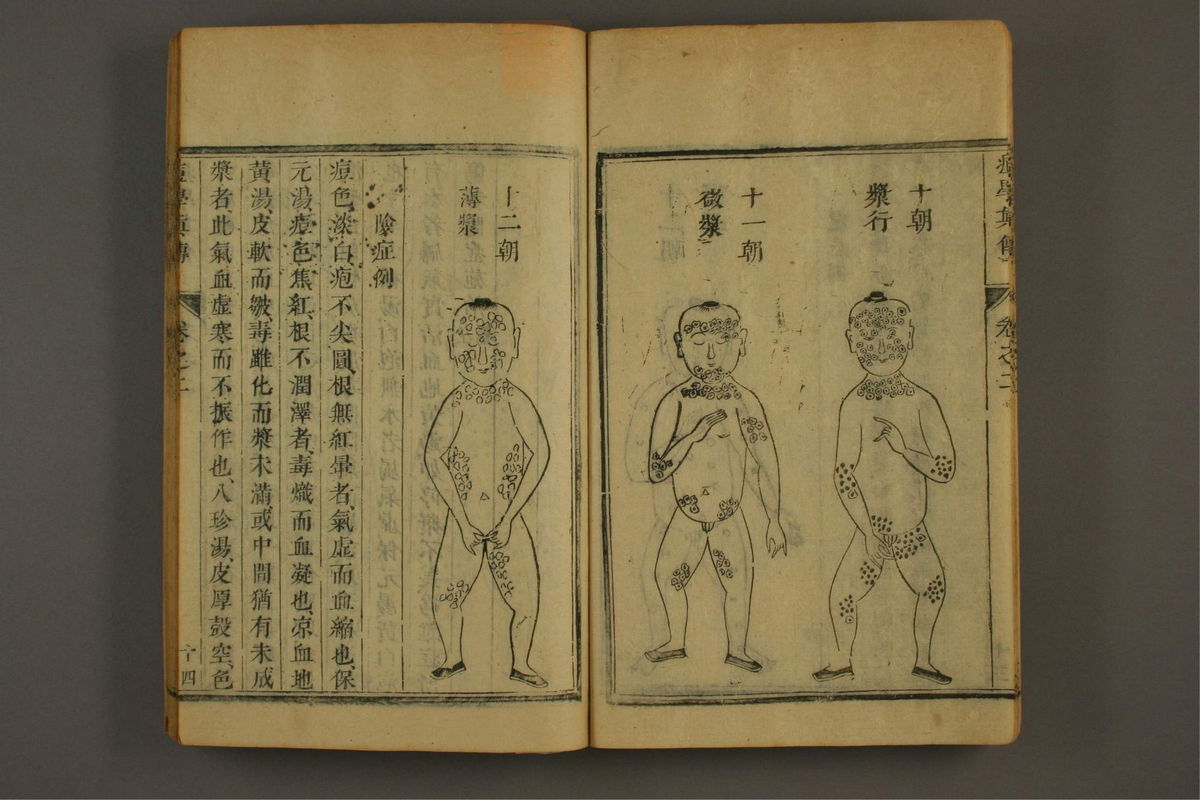 十朝
漿行
十一朝
微漿
十二朝
薄漿
險症例
痘色淡白疱不尖圓、根無紅暈者、氣虛而血縮也、保
元湯、痘色焦紅、根不潤澤者、毒熾而血凝也、凉血地
黃湯、皮軟而皺、毒雖化而漿未滿、或中間猶有未成
漿者、此氣血虛寒而不振作也、八珍湯、皮厚殼空、色
痘學真傳
卷之二
十四